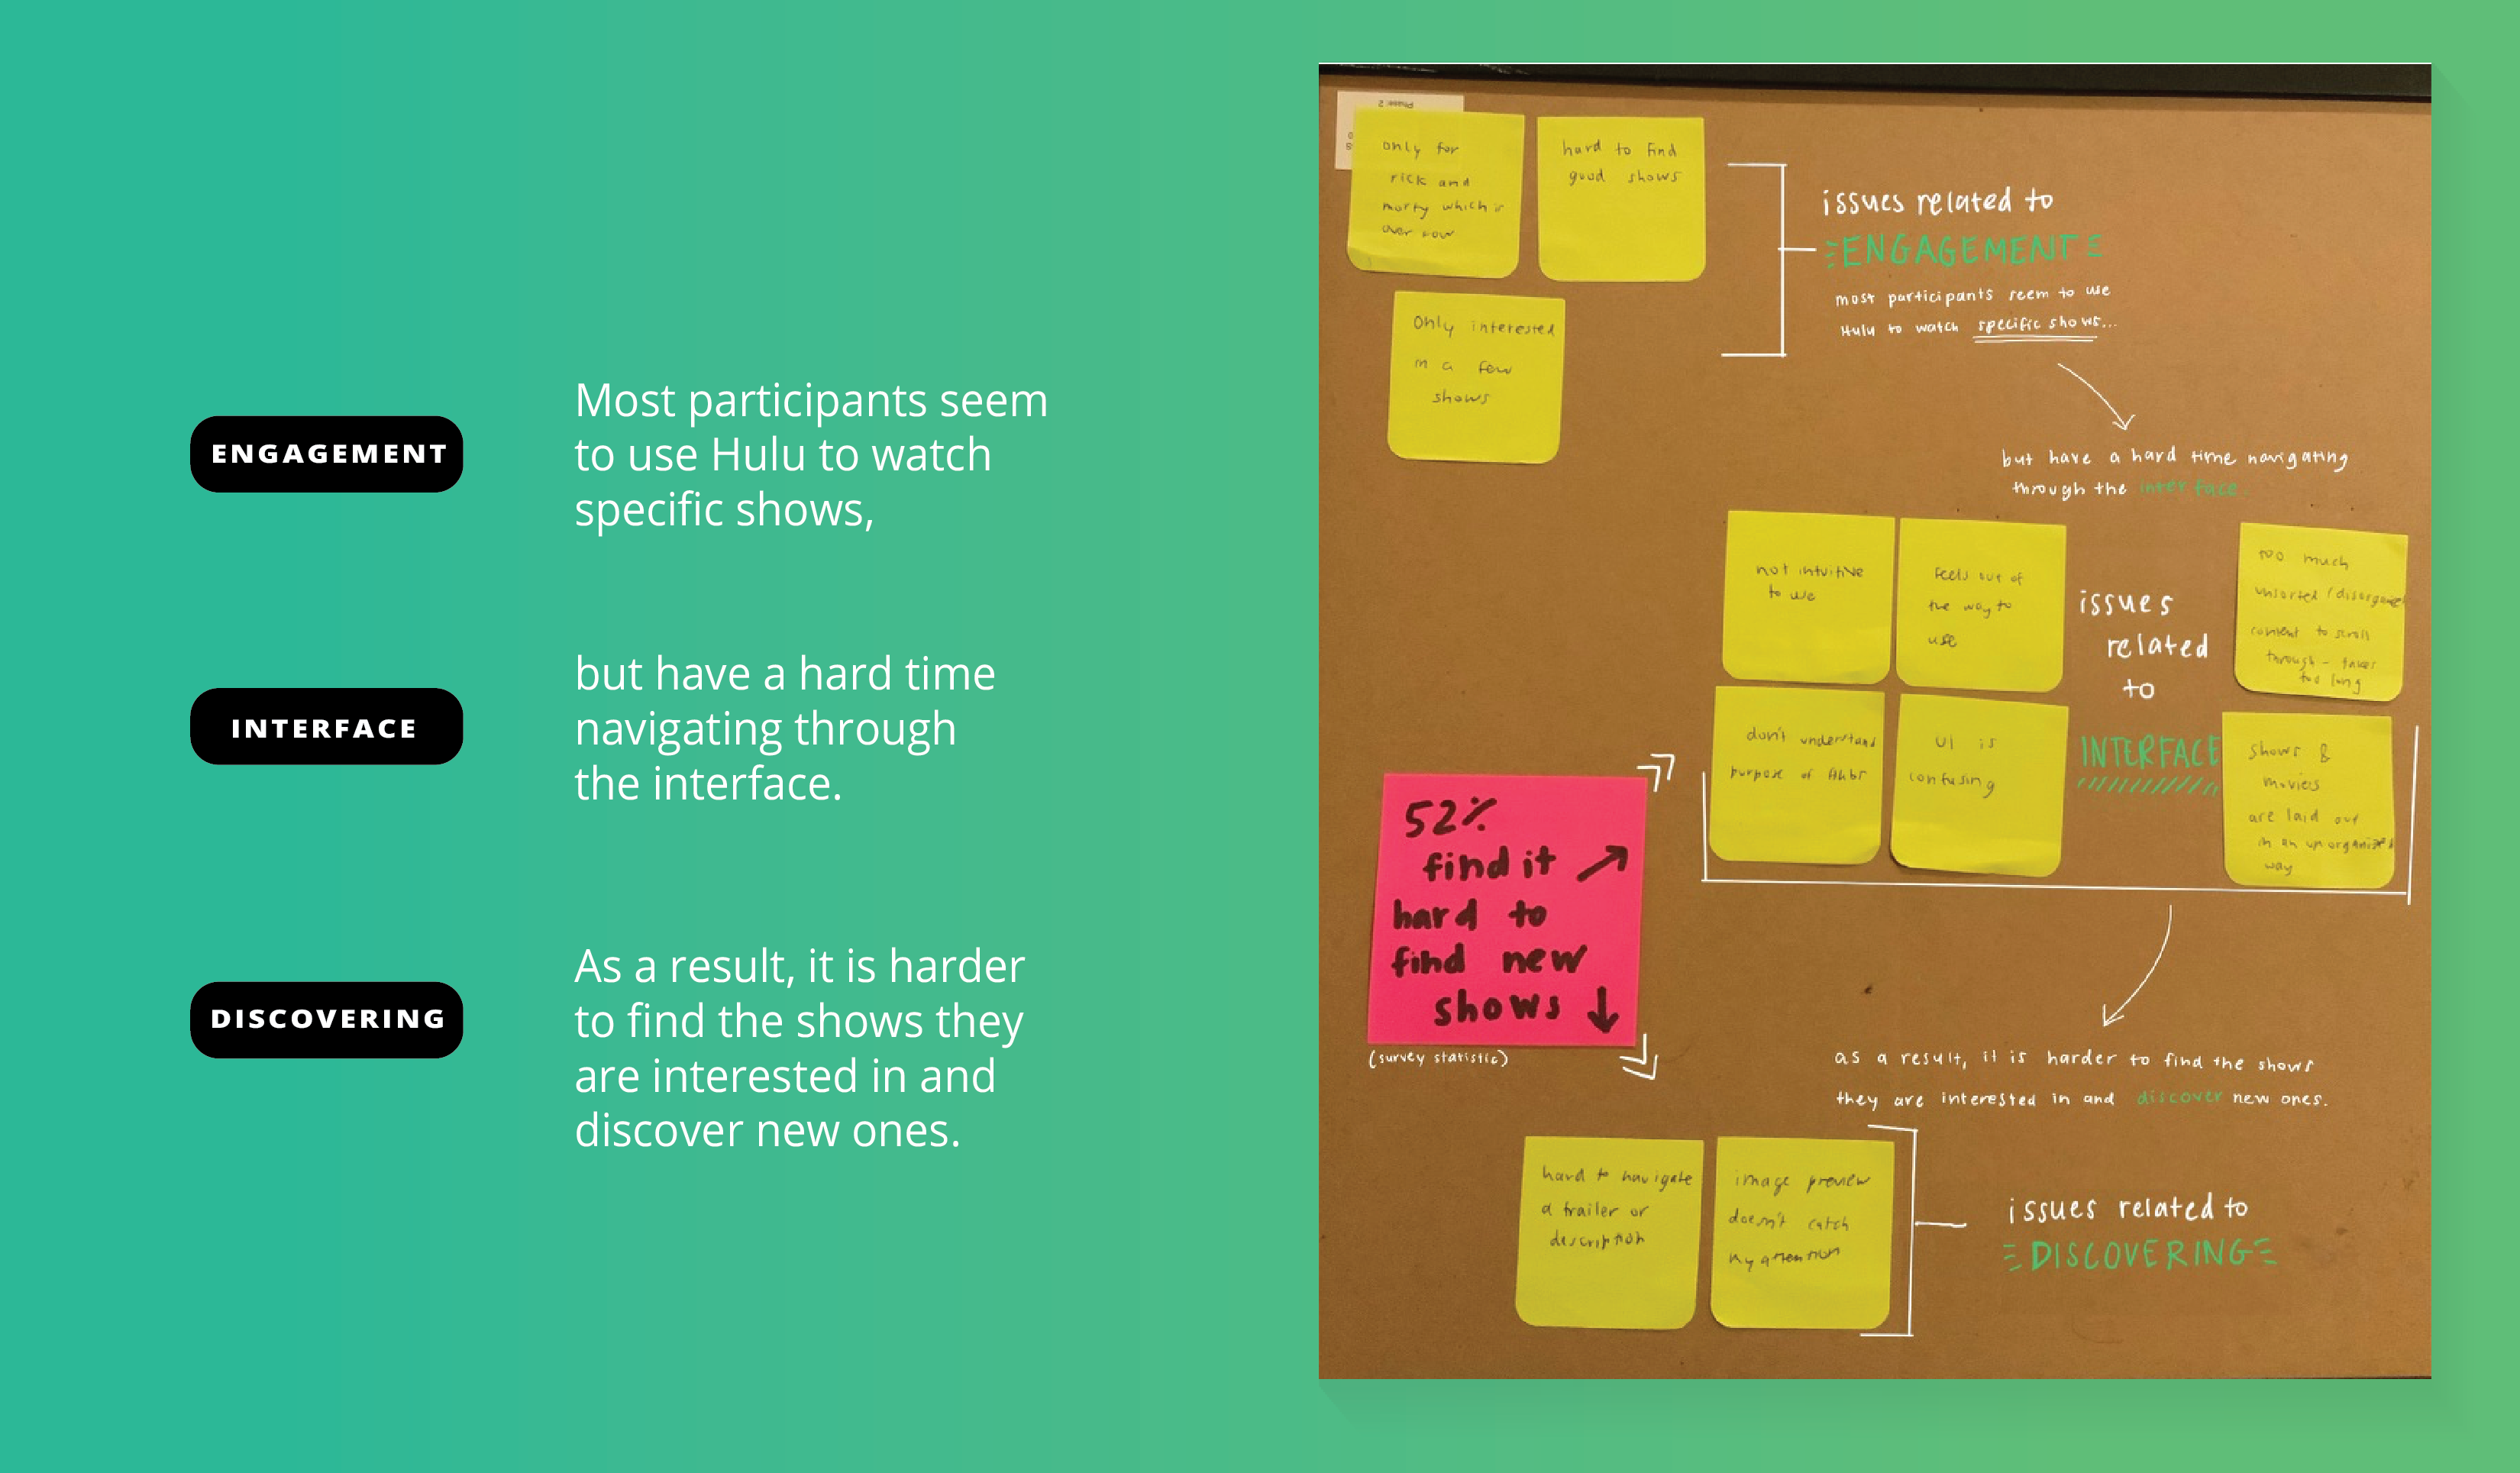 ENGAGEMENT
Most participants seem
to use Hulu to watch
specific shows,
INTERFACE
but have a hard time
navigating through
the interface.
DISCOVERING
As a result, it is harder
to find the shows they
are interested in and
discover new ones.
Phase: 2
only for
rick and
morty which is
over now
hard to find
good shows
Only interested
in a few
shows
issues related to
ENGAGEMENT
most participants seem to use
Hulu to watch specific shows...
but have a hard time navigating
through the interface.
not intuitive
to use
feels out of
the way to
use
don't understand
purpose of
UI is
confusing
issues
related
to
INTERFACE
too much
unsorted/disorganized
content to scroll
through - takes
too long
shows &
movies
are laid out
in an unorganized
way
52%
find it
hard to
find new
shows
(survey statistic)
as a result, it is harder to find the shows
they are interested in and discover new ones.
hard to navigate
a trailer or
description
image preview
doesn't catch
my attention
issues related to
DISCOVERING